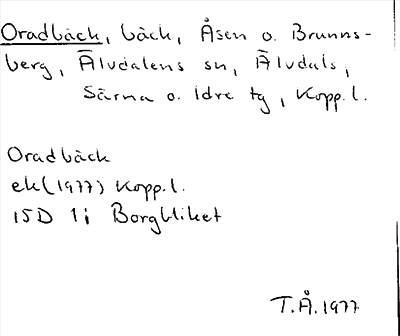 Oradbäck, bäck, Åsen o. Brunns-
berg, Älvdalens sn, Älvdals,
Särna o. Idre tg, Kopp. l.
Oradbäck
ek (1977) Kopp. l.
15D 1i Borgbliket
T.Å. 1977